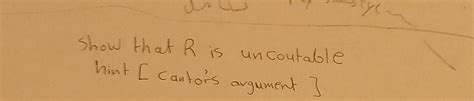 show that R is uncoutable
hint [ Cantor's argument ]